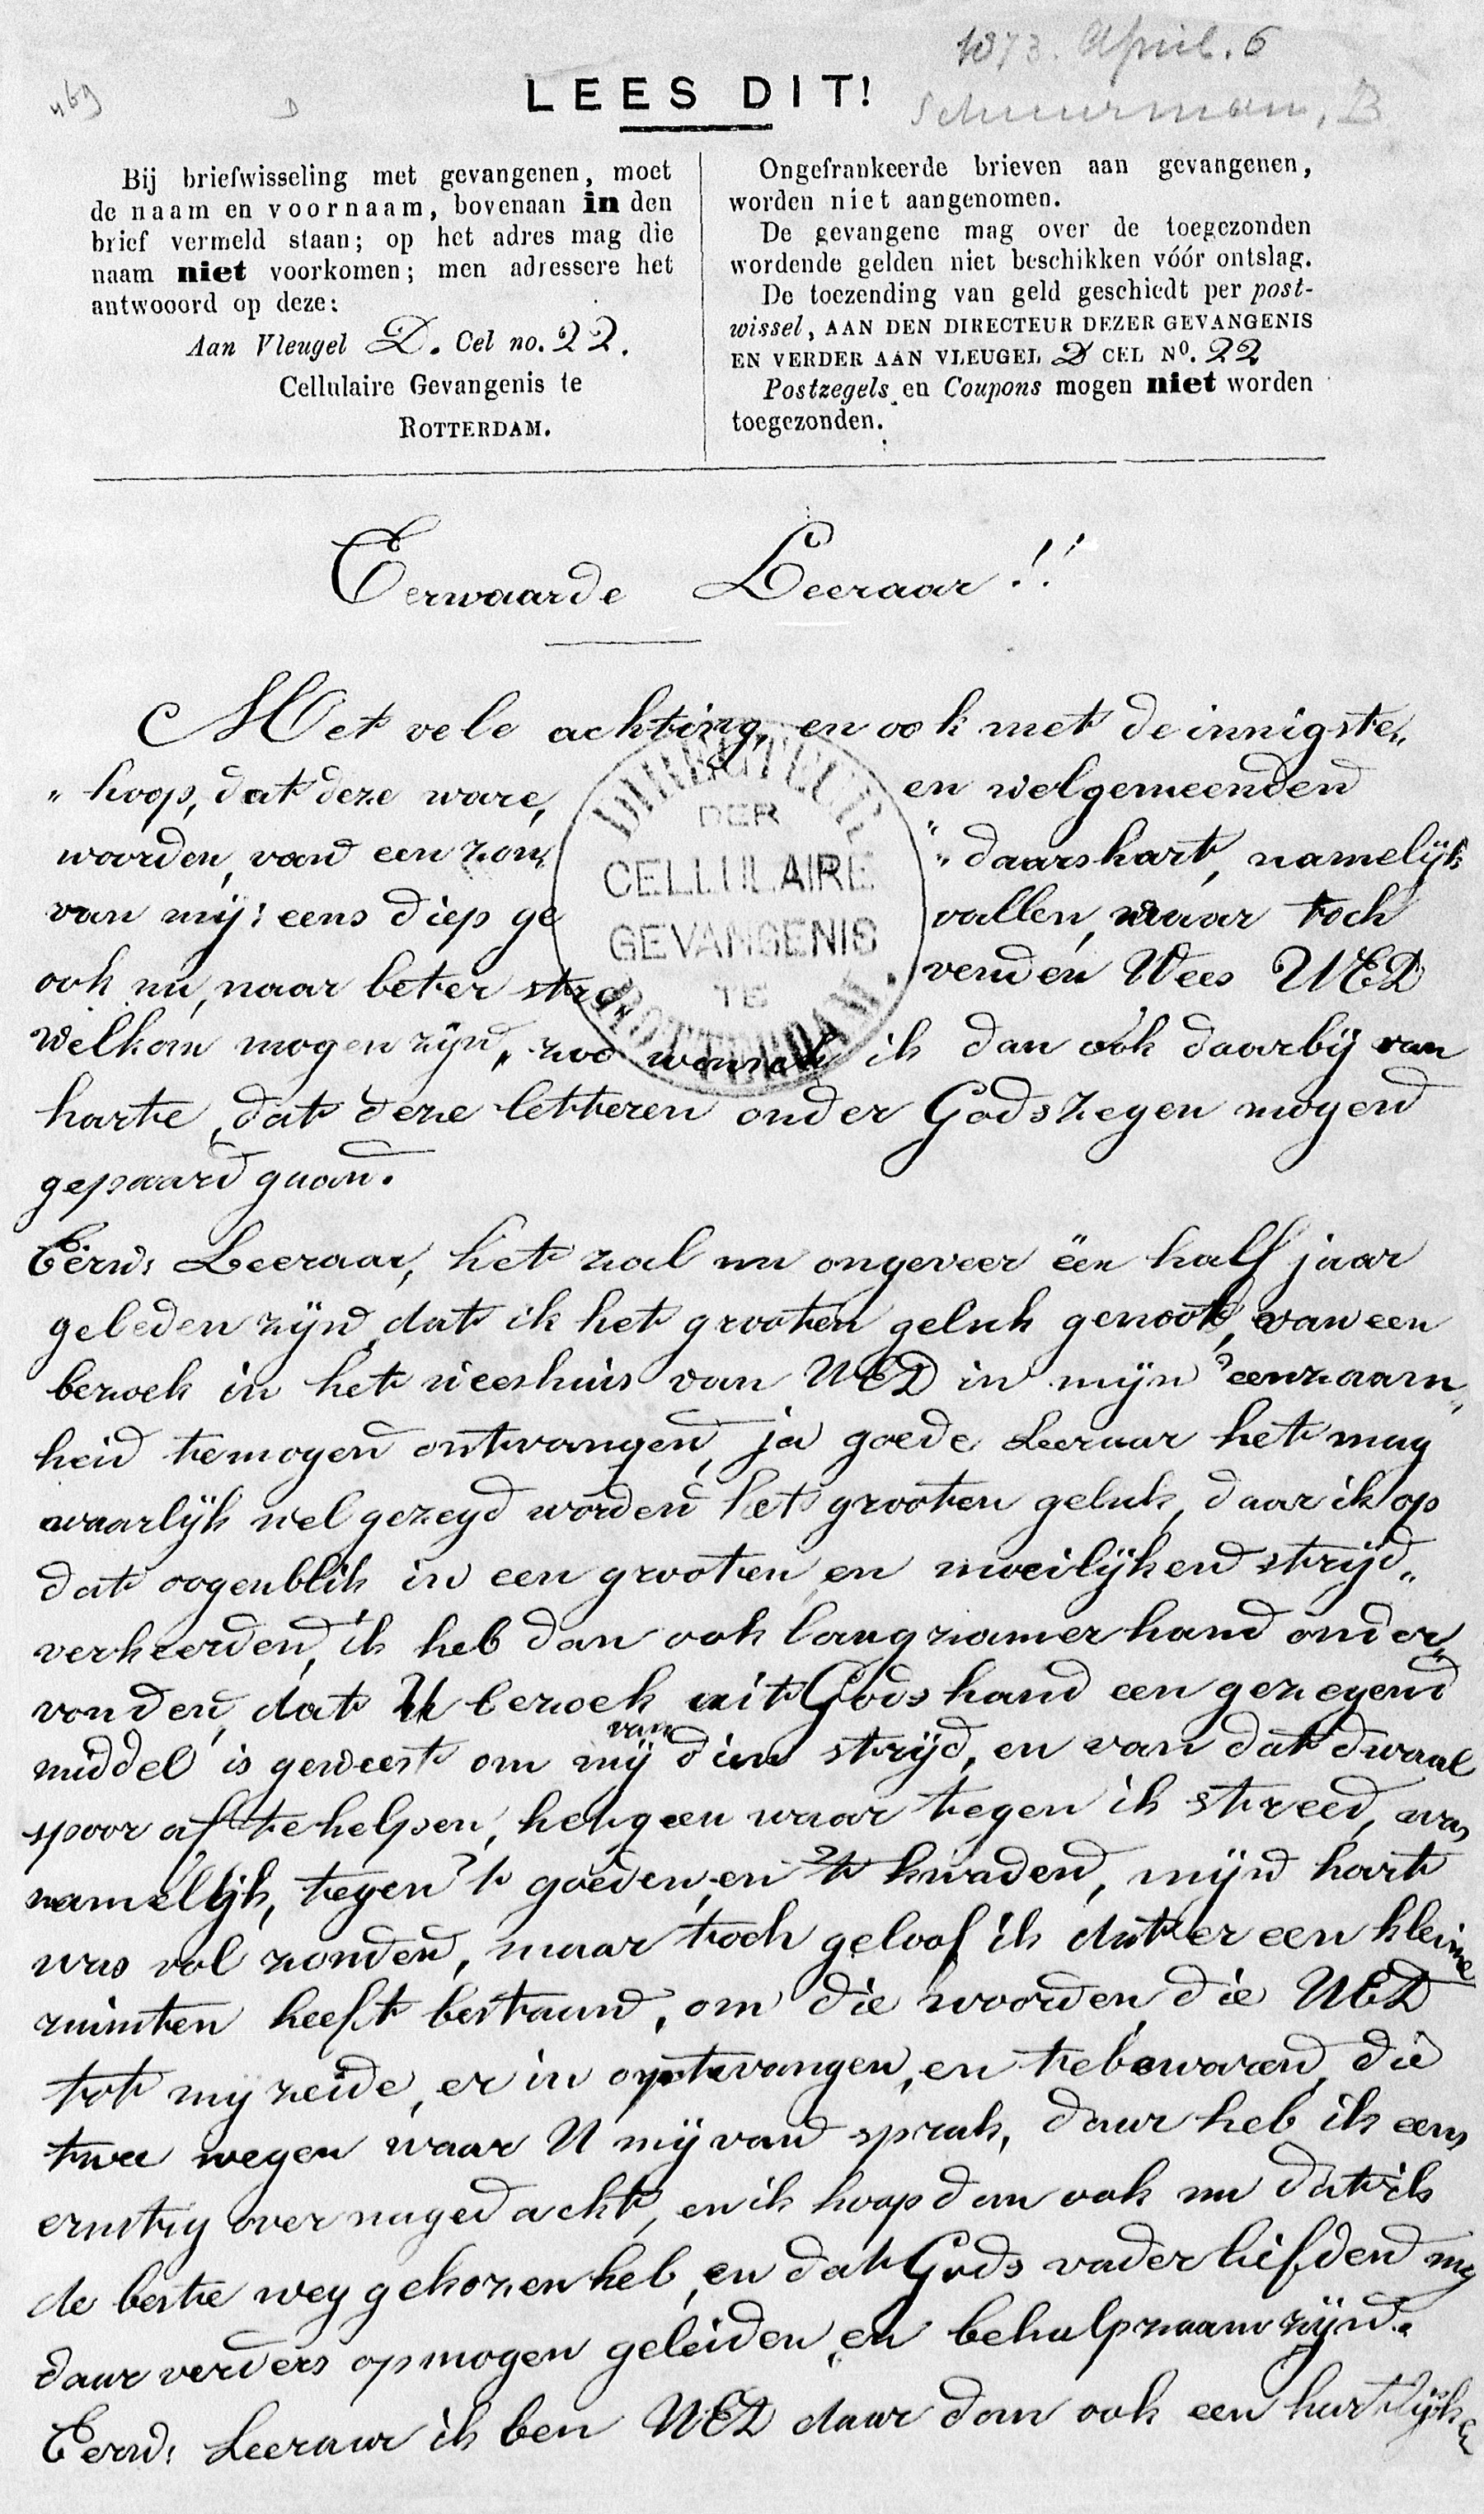 1873. April. 6
LEES DIT!
Schuurman, B
469
Bij briefwisseling met gevangenen, moet
de naam en voornaam, bovenaan in den
brief vermeld staan; op het adres mag die
naam niet voorkomen; men adressere het
antwooord op deze:
Aan Vleugel D. Cel no. 22.
Cellulaire Gevangenis te
ROTTERDAM.
Ongefrankeerde brieven aan gevangenen,
worden niet aangenomen.
De gevangene mag over de toegezonden
wordende gelden niet beschikken vóór ontslag.
De toezending van geld geschiedt per post-
wissel, AAN DEN DIRECTEUR DEZER GEVANGENIS
EN VERDER AAN VLEUGEL D CEL No. 22
Postzegels en Coupons mogen niet worden
toegezonden.
Eerwaarde Leeraar!!
Met vele achting, en ook met de innigste„
„hoop, dat deze ware, en welgemeenden
woorden, van een zon„ „daarshart, namelijk
van mij: eens diep ge vallen, maar toch
ook nu, naar beter stre venden Wees UED
welkom mogen zijn, zoo wensch ik dan ook daarbij van
harte, dat deze letteren onder Gods zegen mogen
gepaard gaan.
DIRECTEUR
DER
CELLULAIRE
GEVANGENIS
TE
ROTTERDAM.
Eerw: Leeraar, het zal nu ongeveer een half jaar
geleden zijn, dat ik het grooten geluk genoot, van een
bezoek in het weeshuis van UED in mijn eenzaam„
heid temogen ontvangen, ja goede Leeraar het mag
waarlijk wel gezegd worden het grooten geluk, daar ik op
dat oogenblik in een grooten en moeilijken strijd„
verkeerden, ik heb dan ook langzamerhand onder„
vonden, dat U bezoek uit Gods hand een gezegend
middel is geweest om mij van dien strijd, en van dat dwaal
spoor af te helpen, hetgeen waar tegen ik streed, was
namelijk, tegen 't goeden, en 't kwaden, mijn hart
was vol zonden, maar toch geloof ik dat er een kleine
ruimten heeft bestaan, om die woorden, die UED
tot mij zeide, er in optevangen, en tebewaren, die
twee wegen waar U mij van sprak, daar heb ik eens
ernstig over nagedacht, en ik hoop dan ook nu dat ik
de beste weg gekozen heb, en dat Gods vaderliefden mij
daar verders op mogen geleiden, en behulpzaam zijn.
Eerw: Leeraar ik ben UED daar dan ook een hartelijke